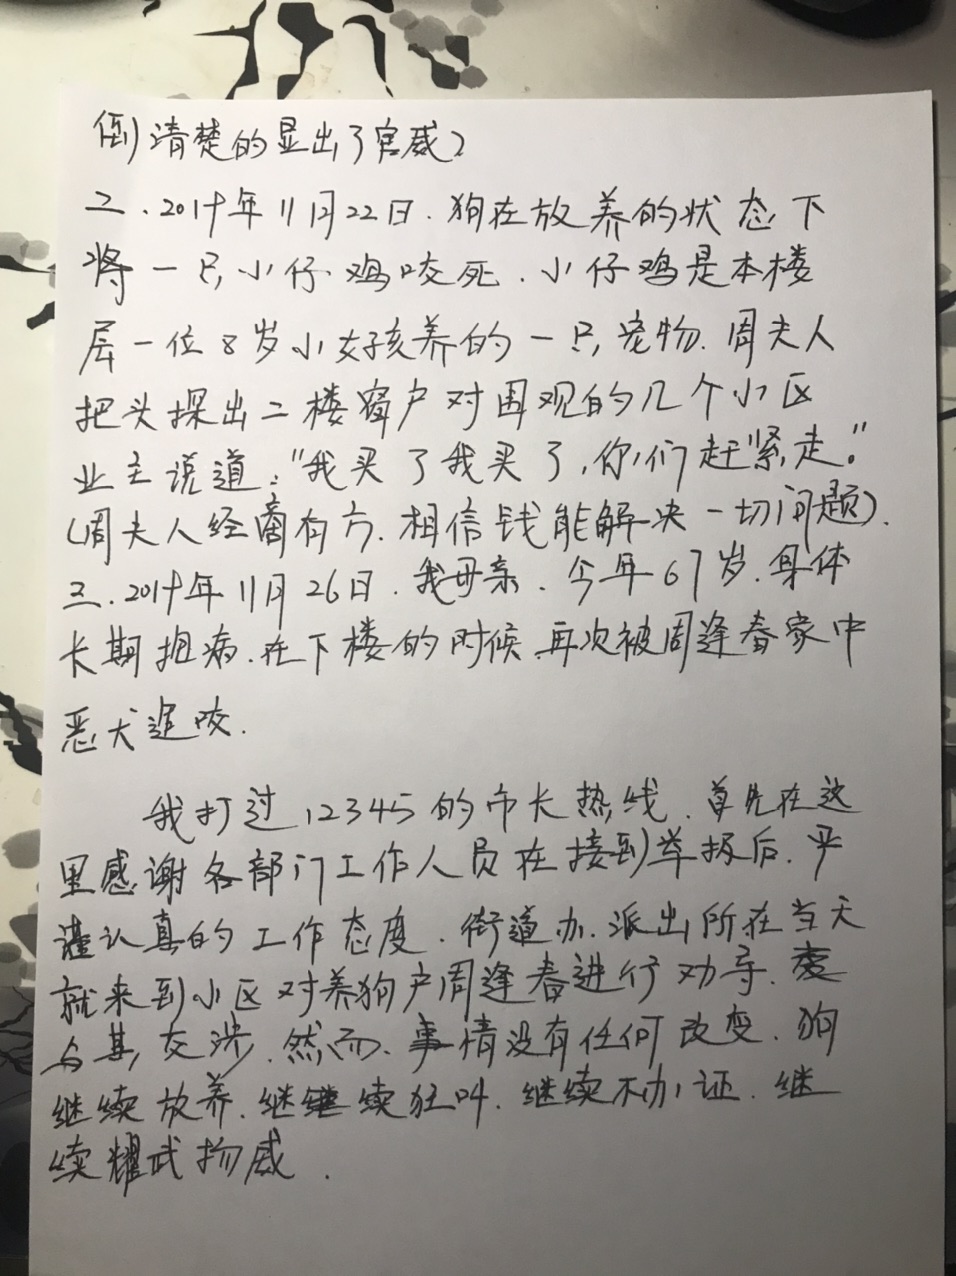 倒清楚的显出了官威)
二.2019年11月22日.狗在放养的状态下
将一只小仔鸡咬死.小仔鸡是本楼
层一位8岁小女孩养的一只宠物.周夫人
把头探出二楼窗户对围观的几个小区
业主说道:"我买了我买了,你们赶紧走。"
(周夫人经商有方.相信钱能解决一切问题).
三.2019年11月26日.我母亲.今年67岁.身体
长期抱病.在下楼的时候.再次被周逢春家中
恶犬追咬.
我打过12345的市长热线.首先在这
里感谢各部门工作人员在接到举报后.严
谨认真的工作态度.街道办.派出所在当天
就来到小区对养狗户周逢春进行劝导.
与其交涉.然而.事情没有任何改变.狗
继续放养.继续狂叫.继续不办证.继
续耀武扬威.